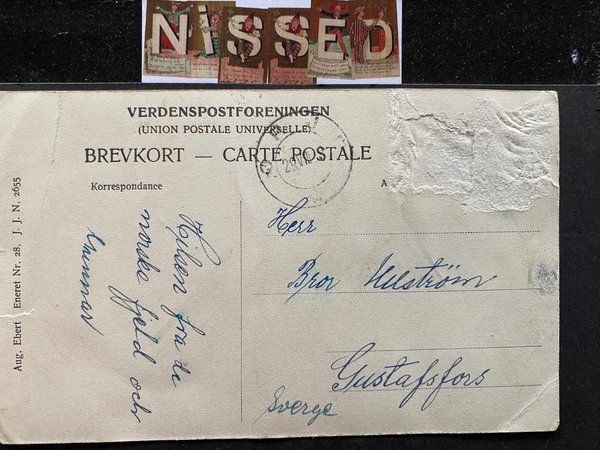 NISSED
VERDENSPOSTFORENINGEN
(UNION POSTALE UNIVERSELLE)
BREVKORT — CARTE POSTALE
Korrespondance
A
Aug. Ebert Eneret Nr. 28. J. J. N. 2655
Hilsen fra de
norske fjeld och
Herr
Bror Ullström
Gustafsfors
Sverge